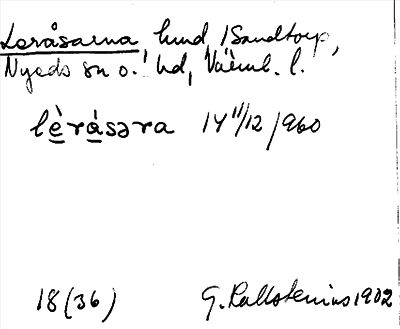 Leråsarna, hmd, i Sandtorp,
Nyeds sn o. hd, Värml. l.
lèråsəra 14 11/12 /960
18 (36) G. Kallstenius 1902